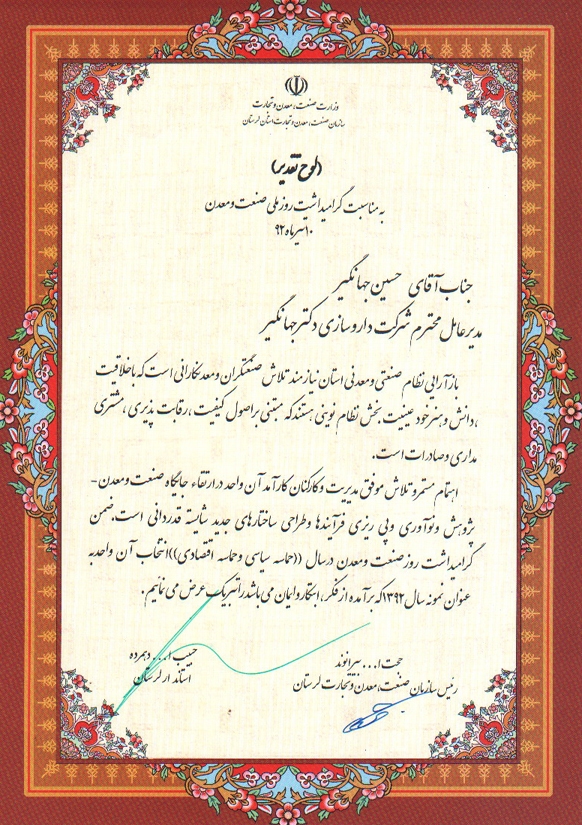 وزارت صنعت، معدن و تجارت
سازمان صنعت، معدن و تجارت استان لرستان
(لوح تقدیر)
به مناسبت گرامیداشت روز ملی صنعت و معدن
۱۰ تیر ماه ۹۲
جناب آقای حسین جهانگیر
مدیر عامل محترم شرکت داروسازی دکتر جهانگیر
بازآرایی نظام صنعتی و معدنی استان نیازمند تلاش صنعتگران و معدنکارانی است که با خلاقیت
،دانش و هنر خود عینیت بخش نظام نوینی هستند که مبتنی بر اصول کیفیت ،رقابت پذیری ،مشتری
مداری و صادرات است.
اهتمام مستمر و تلاش موفق مدیریت و کارکنان کارآمد آن واحد در ارتقاء جایگاه صنعت و معدن-
پژوهش و نوآوری و پی ریزی فرآیندها و طراحی ساختارهای جدید شایسته قدردانی است. ضمن
گرامیداشت روز صنعت و معدن در سال ((حماسه سیاسی و حماسه اقتصادی)) انتخاب آن واحد به
عنوان نمونه سال ۱۳۹۲ که برآمده از فکر، ابتکار و ایمان می باشد را تبریک عرض می نماییم.
حجت ا... بیرانوند
رئیس سازمان صنعت، معدن و تجارت لرستان
حبیب ا... دهمرده
استاندار لرستان